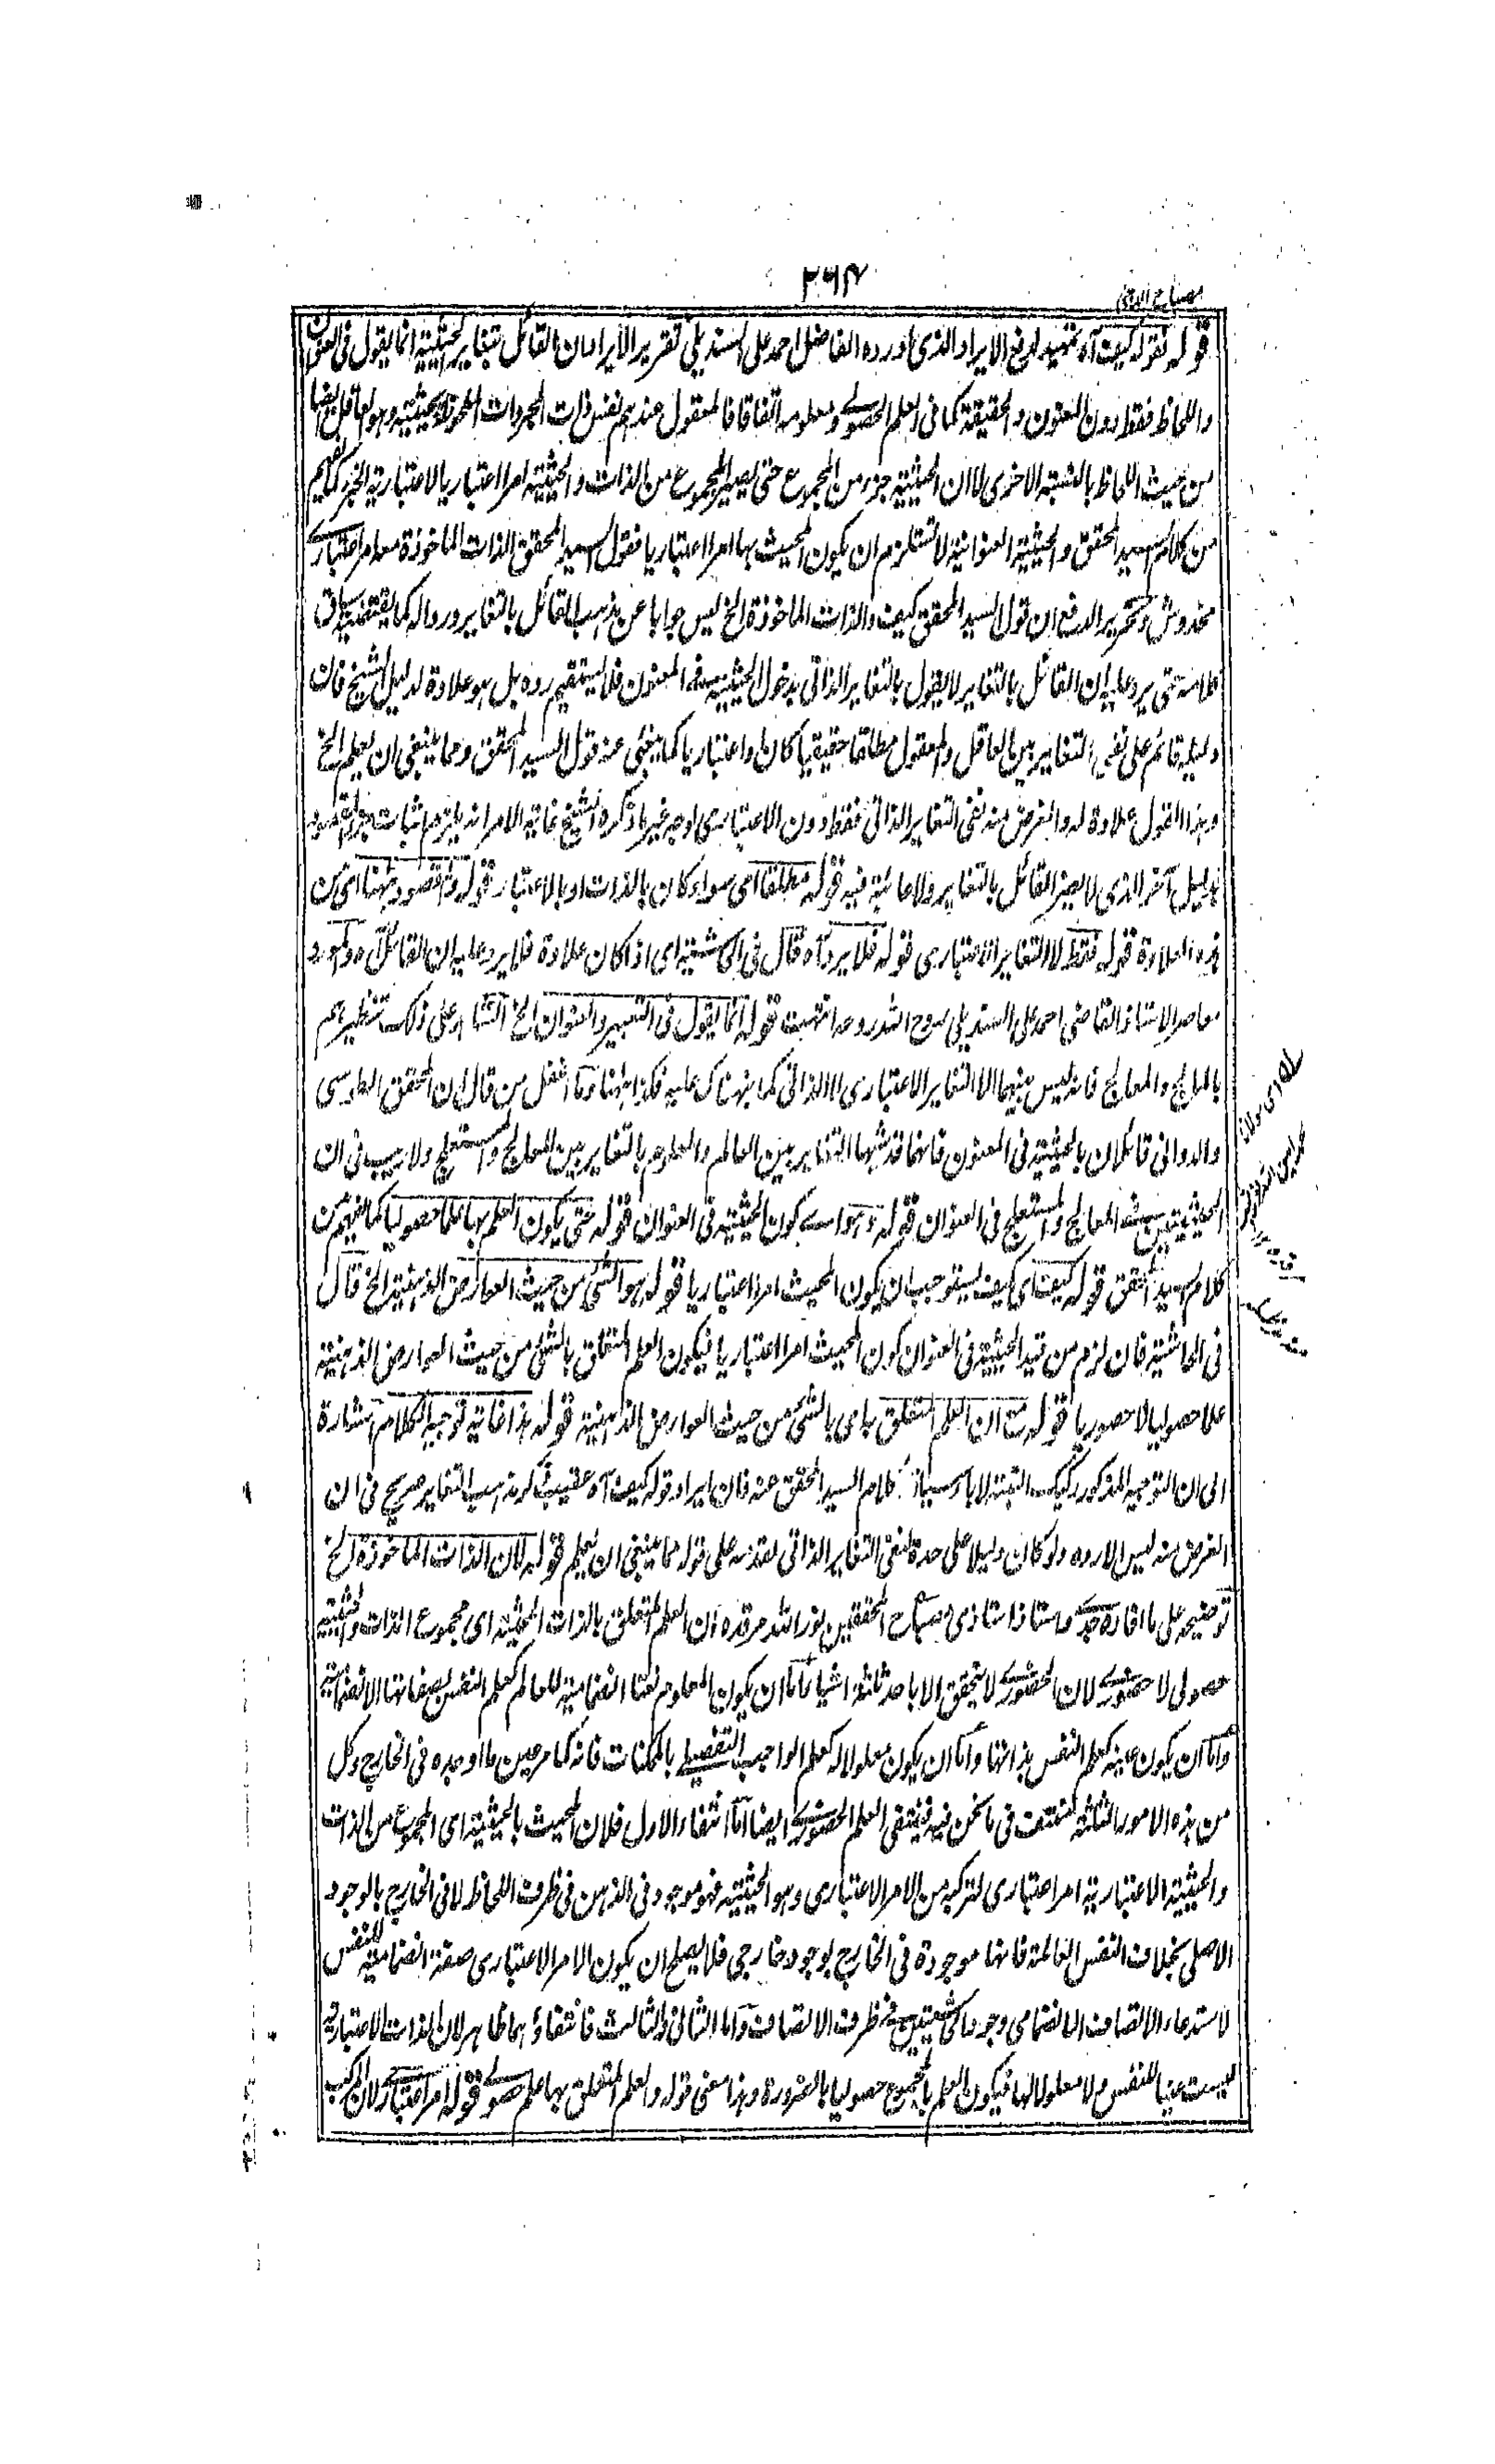 ٢٦٤
مصباح الدجى
قوله تقوله كيف آه تمهيد لدفع الايراد الذى اورده الفاضل احمد على السنديلى تقرير الايراد ان القائل بتغاير الحيثية انما يقول فى العنوان
واللحاظ فقط دون المعنون والحقيقة كما فى العلم الحصولى ومعلومه اتفاقا فالمعقول عندهم نفس ذات المجردات الملحوظة بحيثية وهو العاقل ايضا
من حيث اللحاظ بالحيثية الاخرى لا ان الحيثية جزء من المجموع حتى يصير المجموع من الذات والحيثية امرا اعتباريا لاعتبارية الجزء كما يفهم
من كلام السيد المحقق والحيثية العنوانية لا تستلزم ان يكون المحيث بها امرا اعتباريا فقول السيد المحقق الذات الماخوذة معه امر اعتبارى
مخدوش وتحرير الدفع ان قول السيد المحقق كيف والذات الماخوذة الخ ليس جوابا عن مذهب القائل بالتغاير وردا له كما يقتضيه سياق
كلامه حتى يرد عليه ان القائل بالتغاير لا يقول بالتغاير الذاتى بدخول الحيثية فى المعنون فلا يستقيم رده بل هو علاوة لدليل الشيخ فان
دليله قائم على نفى التغاير بين العاقل والمعقول مطلقا حقيقيا كان او اعتباريا كما ينبئى عنه قول السيد المحقق ومما ينبغى ان يعلم الخ
وهذا القول علاوة له والغرض منه نفى التغاير الذاتى فقط دون الاعتبارى بوجه غير ما ذكره الشيخ غاية الامر انه يلزم اثبات جزء المقصود
بدليل آخر الذى لا يضر القائل بالتغاير ولا عائبة فيه قوله مطلقا اى سواء كان بالذات او بالاعتبار قوله والمقصود ههنا اى من
هذه العلاوة قوله فقط لا التغاير الاعتبارى قوله فلا يرد آه قال فى الحاشية اى اذا كان علاوة فلا يرد عليه ان القائل آه والمورد
معاصر الاستاذ القاضى احمد على السنديلى روح الله روحه انتهت قوله انما يقول فى التعبير والعنوان الخ الشاهد على ذلك تنظيرهم
بالمعالج والمعالج فانه ليس بينهما الا التغاير الاعتبارى لا الذاتى كما ينهناك عليه فكذا ههنا وما اغفل من قال ان المحقق الطوسى
والدوانى قائلان بالحيثية فى المعنون فانهما قد شبها التغاير بين العالم والمعلوم بالتغاير بين المعالج والمستعلج ولا ريب فى ان
الحيثيتين فى المعالج والمستعلج فى العنوان قوله وهو اى كون الحيثية فى العنوان قوله حتى يكون العلم بها علما حصوليا كما يفهم من
كلام السيد المحقق قوله كيف اى كيف يستوجب ان يكون المحيث امرا اعتباريا قوله هو الشئ من حيث العوارض الذهنية الخ قال
فى الحاشية فان لزم من قيد الحيثية فى العنوان كون المحيث امرا اعتباريا فيكون العلم المتعلق بالشئ من حيث العوارض الذهنية
علما حصوليا لا حضوريا قوله مع ان العلم المتعلق به اى بالشئ من حيث العوارض الذهنية قوله هذا غاية توجيه الكلام اشارة
الى ان التوجيه المذكور ركيك البتة لاباء سياق كلام السيد المحقق عنه فان ايراد قوله كيف آه عقيب ذكر مذهب التغاير صريح فى ان
الغرض منه ليس الا رده ولو كان دليلا على حدة لنفى التغاير الذاتى لقدمه على قوله مما ينبغى ان يعلم قوله لان الذات الماخوذة الخ
توضيحه على ما افاده جدى واستاذ استاذى مصباح المحققين نور الله مرقده ان العلم المتعلق بالذات المحيثية اى مجموع الذات والحيثية
حصولى لا حضورى لان الحضورى لا يتحقق الا باحد ثلثة اشياء اما ان يكون المعلوم نعتا انضمامية للعالم كعلم النفس بصفاتها الانضمامية
واما ان يكون عينه كعلم النفس بذاتها واما ان يكون معلولا له كعلم الواجب التفصيلى بالممكنات فانه كما مر عين ما اوجده فى الخارج وكل
من هذه الامور الثلثة منتف فى ما نحن فيه فينتفى العلم الحضورى ايضا اما انتفاء الاول فلان المحيث بالحيثية اى المجموع من الذات
والحيثية الاعتبارية امر اعتبارى لتركبه من الامر الاعتبارى وهو الحيثية فهو موجود فى الذهن فى ظرف اللحاظ لا فى الخارج بالوجود
الاصلى بخلاف النفس العالمة فانها موجودة فى الخارج بوجود خارجى فلا يصلح ان يكون الامر الاعتبارى صفة انضمامية للنفس
لاستدعاء الاتصاف الانضمامى وجود الحاشيتين فى ظرف الاتصاف واما الثانى والثالث فانتفاؤهما ظاهر لان الذات الاعتبارية
ليست عينا للنفس ولا معلولا لها فيكون العلم بالمجموع حصوليا بالضرورة وهذا معنى قوله والعلم المتعلق بها علم حصولى قوله امر اعتبارى لان المركب
اى مولانا